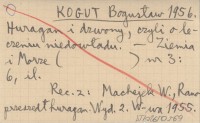 KOGUT Bogusław 1956.
Huragan i dzwony, czyli o le-
czeniu niedowładu. — Ziemia
i Morze ( ) nr 3:
6, il.
Rec. z: Machejek W., Rano
przeszedł huragan Wyd. 2. W-wa 1955.